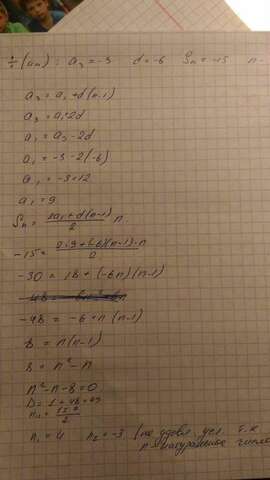 ÷(aₙ): a₃ = -3 d = -6 Sₙ = -15 n -
a₃ = a₁ + d(n-1)
a₃ = a₁+2d
a₁ = a₃ - 2d
a₁ = -3 - 2(-6)
a₁ = -3+12
a₁ = 9
Sₙ = (2a₁ + d(n-1))/2 n
-15 = (2·9+(-6)(n-1)·n)/2
-30 = 18 + (-6n)(n-1)
-48 = -6·n (n-1)
8 = n(n-1)
8 = n² - n
n² - n - 8 = 0
n₁ = 4 n₂ = -3 (не удовл. усл. т.к
n - натуральное число